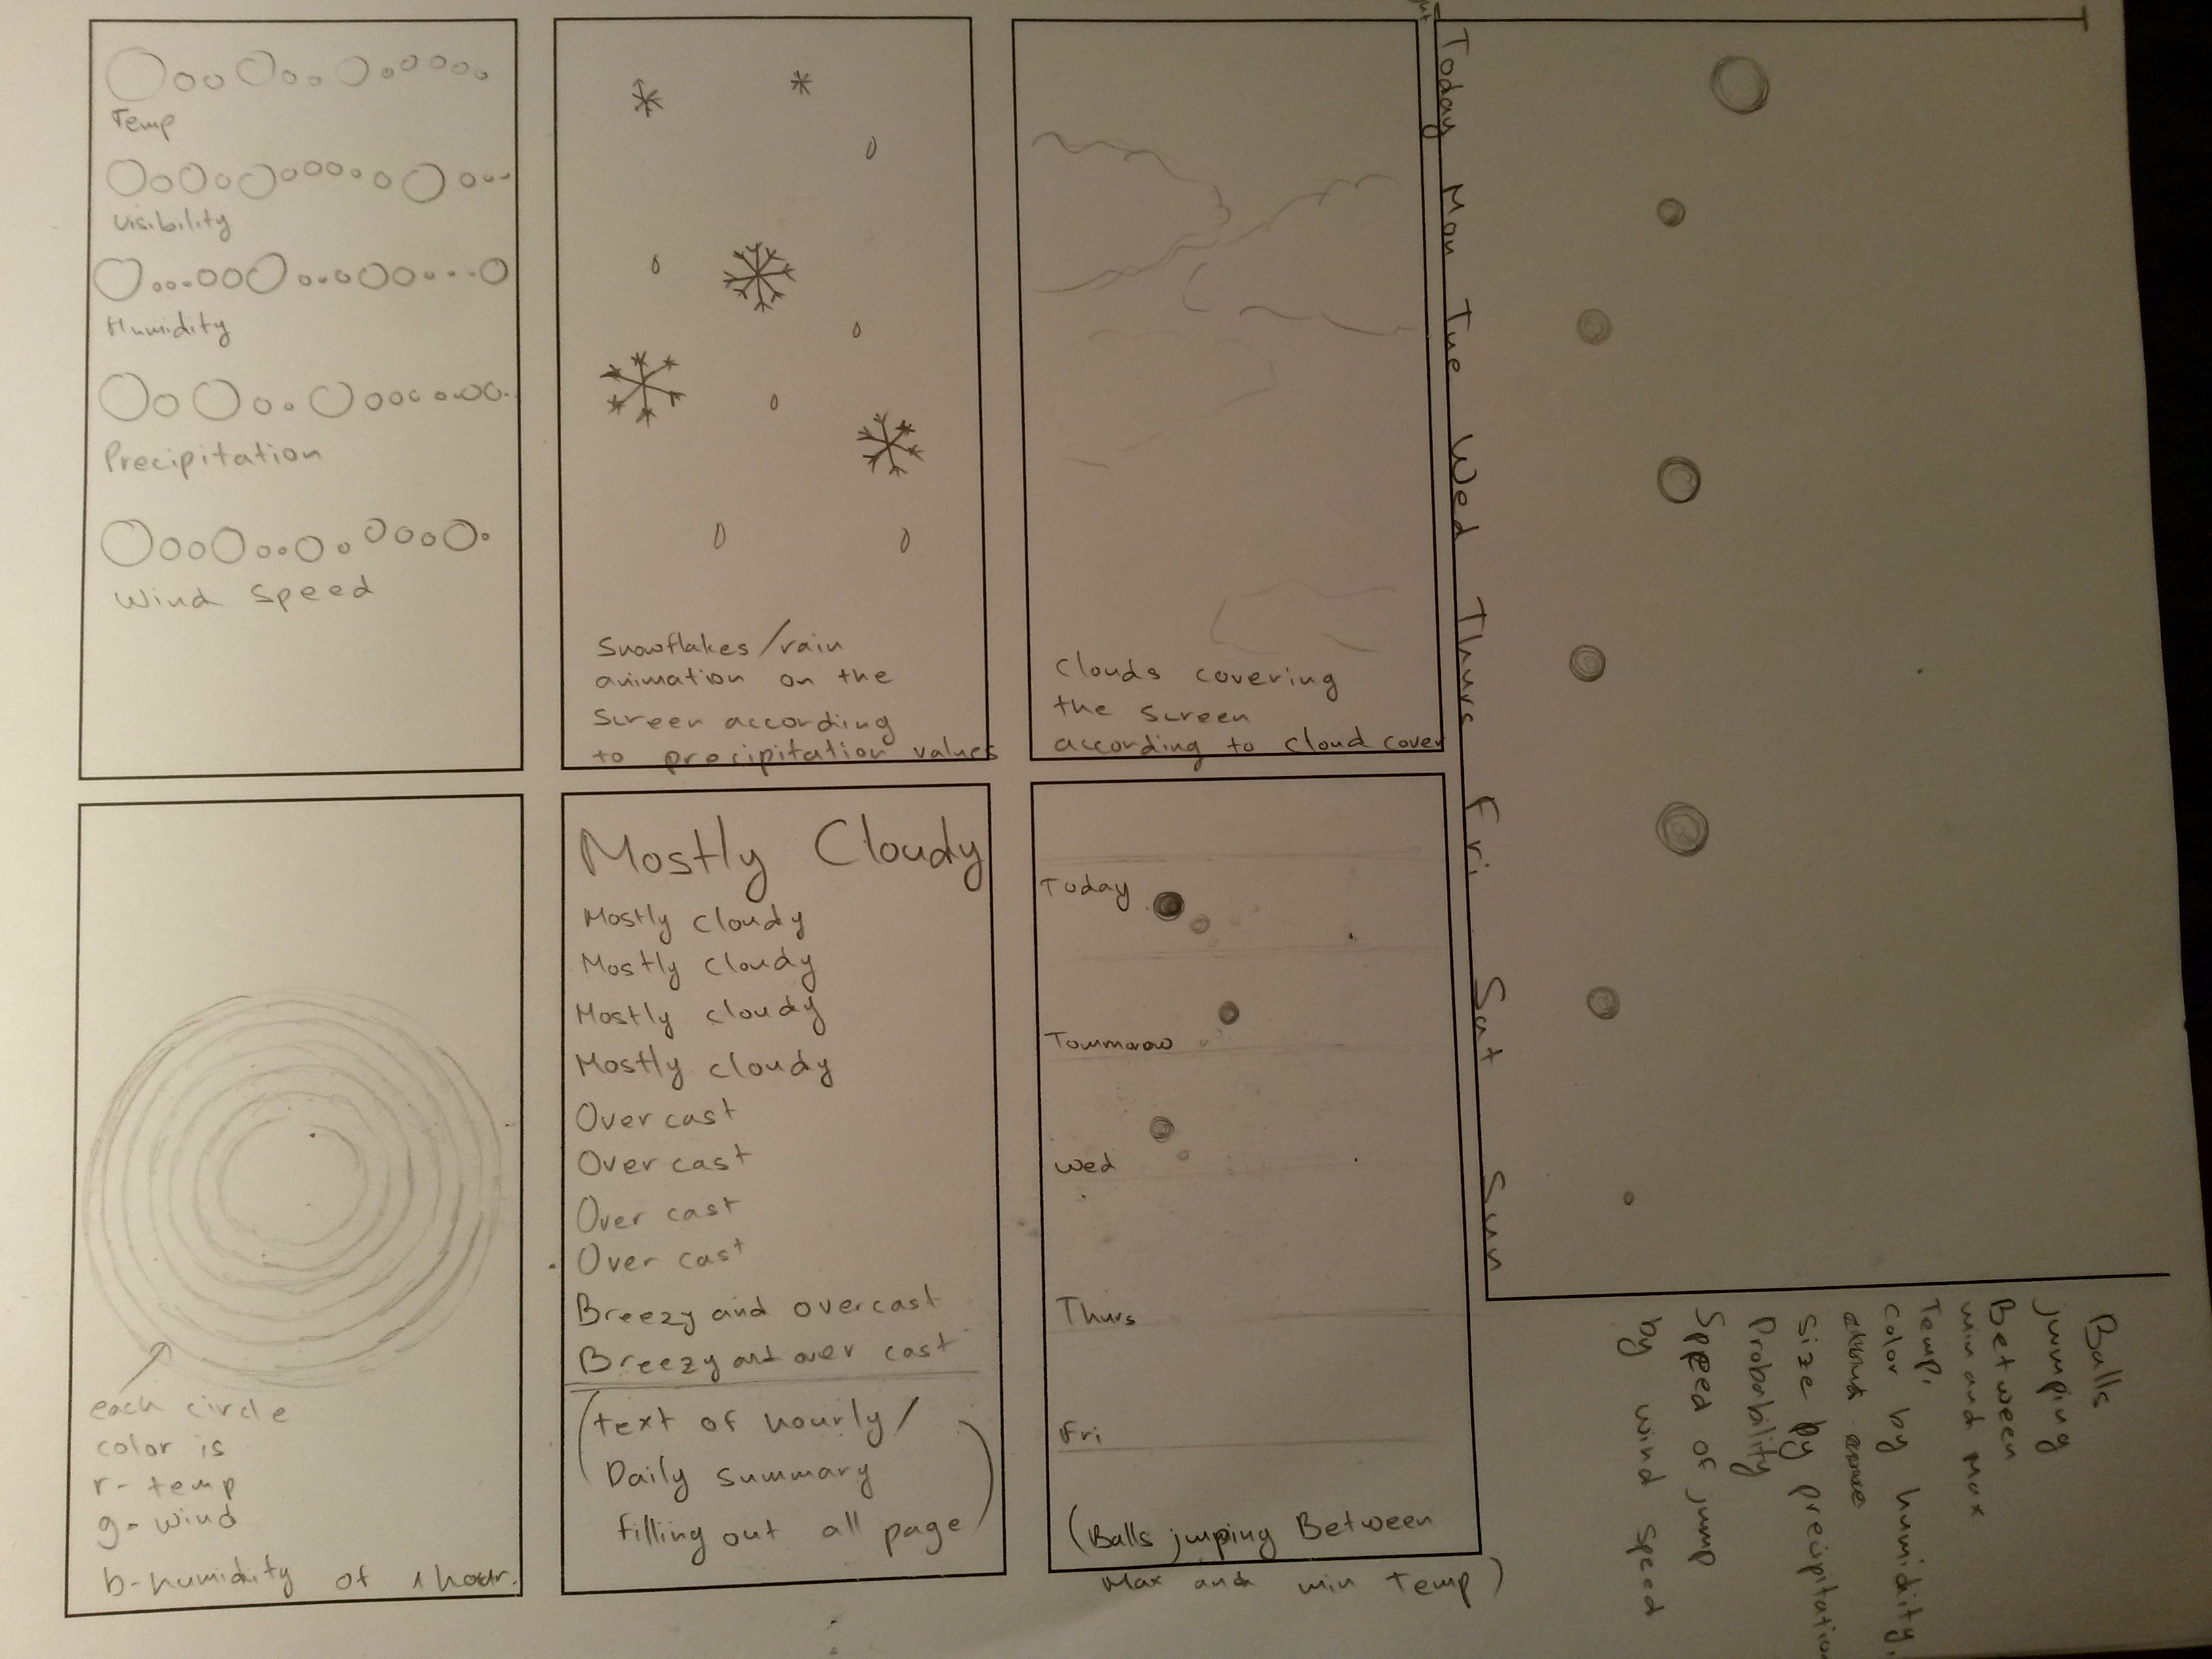 Temp
Visibility
Humidity
Precipitation
Wind Speed
Snowflakes/rain
animation on the
screen according
to precipitation values
Clouds covering
the screen
according to cloud cover
each circle
color is
r- temp
g- wind
b- humidity of 1 hour.
Mostly Cloudy
Mostly cloudy
Mostly cloudy
Mostly cloudy
Mostly cloudy
Over cast
Over cast
Over cast
Over cast
Breezy and overcast
Breezy and over cast
(text of hourly/
Daily summary
filling out all page)
Today
Tommorow
Wed
Thurs
Fri
(Balls jumping Between
Max and min temp)
Today Mon Tue Wed Thurs Fri. Sat Sun
Balls
jumping
Between
min and Max
Temp,
Color by humidity,
Size by precipitation
Probability
Speed of jump
by wind speed